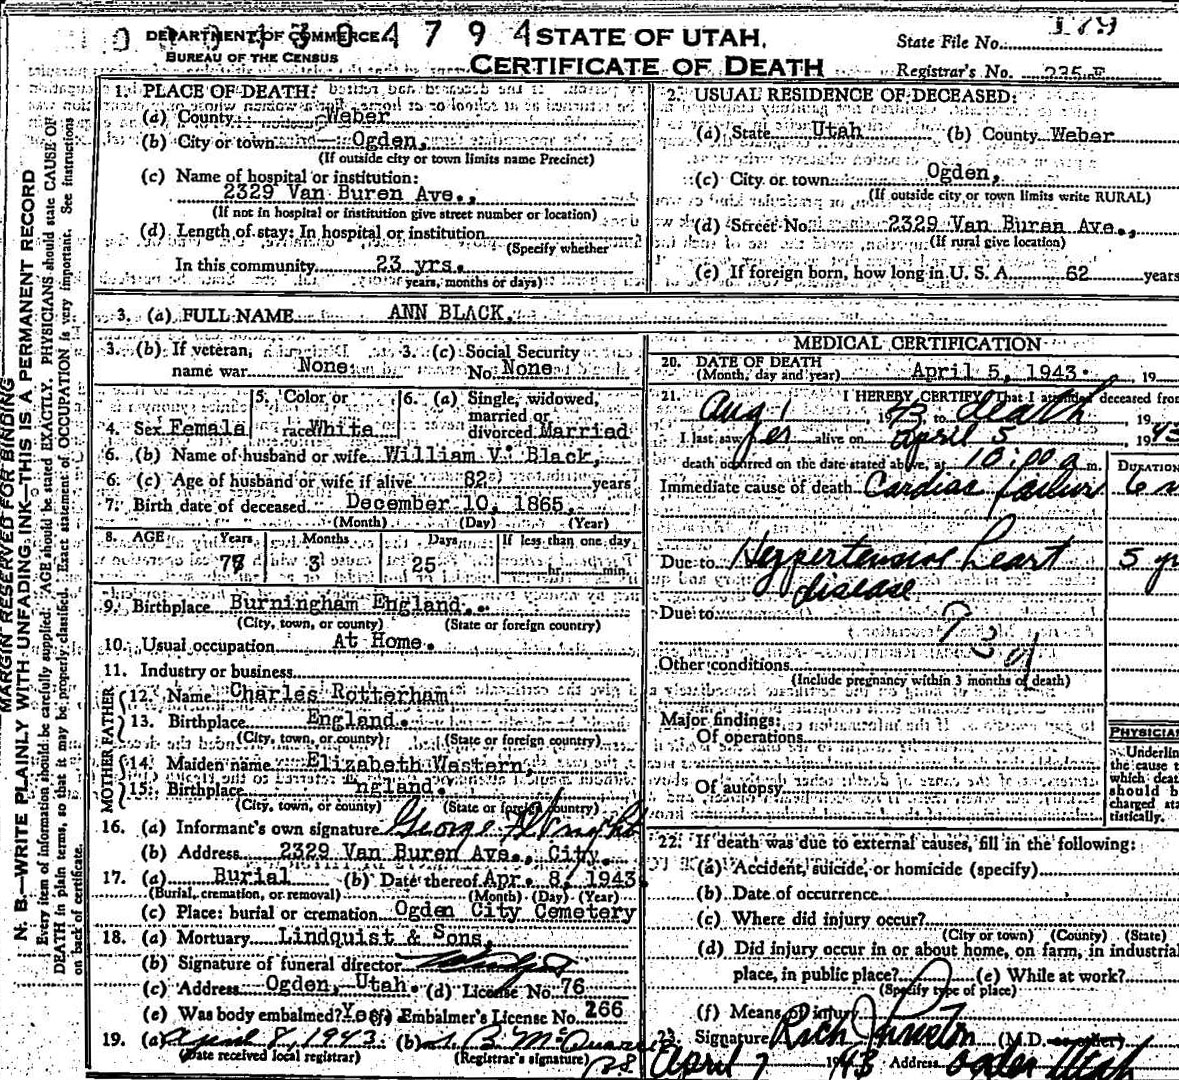 DEPARTMENT OF COMMERCE
BUREAU OF THE CENSUS
4794
STATE OF UTAH
CERTIFICATE OF DEATH
State File No. 179
Registrar's No. 235-E
MARGIN RESERVED FOR BINDING
N. B.—WRITE PLAINLY WITH UNFADING INK—THIS IS A PERMANENT RECORD
Every item of information should be carefully supplied. AGE should be stated EXACTLY. PHYSICIANS should state CAUSE OF
DEATH in plain terms, so that it may be properly classified. Exact statement of OCCUPATION is very important. See instructions
on back of certificate.
1. PLACE OF DEATH:
(a) County Weber
(b) City or town Ogden,
(If outside city or town limits name Precinct)
(c) Name of hospital or institution:
2329 Van Buren Ave.,
(If not in hospital or institution give street number or location)
(d) Length of stay: In hospital or institution
(Specify whether
In this community 23 yrs.
years, months or days)
2. USUAL RESIDENCE OF DECEASED:
(a) State Utah (b) County Weber
(c) City or town Ogden,
(If outside city or town limits write RURAL)
(d) Street No. 2329 Van Buren Ave.,
(If rural give location)
(e) If foreign born, how long in U. S. A. 62 years
3. (a) FULL NAME ANN BLACK.
3. (b) If veteran, name war None
3. (c) Social Security No. None
4. Sex Female
5. Color or race White
6. (a) Single, widowed, married or divorced Married
6. (b) Name of husband or wife William V. Black,
6. (c) Age of husband or wife if alive 82 years
7. Birth date of deceased December 10, 1865
(Month) (Day) (Year)
8. AGE Years Months Days If less than one day
77 3 25 hr. min.
9. Birthplace Burningham England.
(City, town, or county) (State or foreign country)
10. Usual occupation At Home.
11. Industry or business
FATHER
12. Name Charles Rotterham
13. Birthplace England.
(City, town, or county) (State or foreign country)
MOTHER
14. Maiden name Elizabeth Wastern,
15. Birthplace ngland.
(City, town, or county) (State or foreign country)
16. (a) Informant's own signature George
(b) Address 2329 Van Buren Ave., City.
17. (a) Burial (b) Date thereof Apr. 8, 1943
(Burial, cremation, or removal) (Month) (Day) (Year)
(c) Place: burial or cremation Ogden City Cemetery
18. (a) Mortuary Lindquist & Sons,
(b) Signature of funeral director
(c) Address Ogden, Utah. (d) License No. 76
(e) Was body embalmed? Yes (f) Embalmer's License No. 266
19. (a) April 8, 1943. (b)
(Date received local registrar) (Registrar's signature)
MEDICAL CERTIFICATION
20. DATE OF DEATH
(Month, day and year) April 5, 1943. , 19
21. I HEREBY CERTIFY That I attended deceased from
Aug 1 , 1943, to death , 19
I last saw her alive on April 5 , 1943
death occurred on the date stated above, at 10:00 a m.
DURATION
Immediate cause of death Cardiac failure 6
Due to Hyppertensive heart 5 yr
disease
Due to
93d
Other conditions
(Include pregnancy within 3 months of death)
Major findings:
Of operations
Of autopsy
PHYSICIAN
Underlin
the cause t
which deat
should b
charged sta
tistically.
22. If death was due to external causes, fill in the following:
(a) Accident, suicide, or homicide (specify)
(b) Date of occurrence
(c) Where did injury occur?
(City or town) (County) (State)
(d) Did injury occur in or about home, on farm, in industrial
place, in public place? (e) While at work?
(Specify type of place)
(f) Means of injury
23. Signature Rich Johnston (M.D. or other)
April 7 1943 Address Ogden Utah